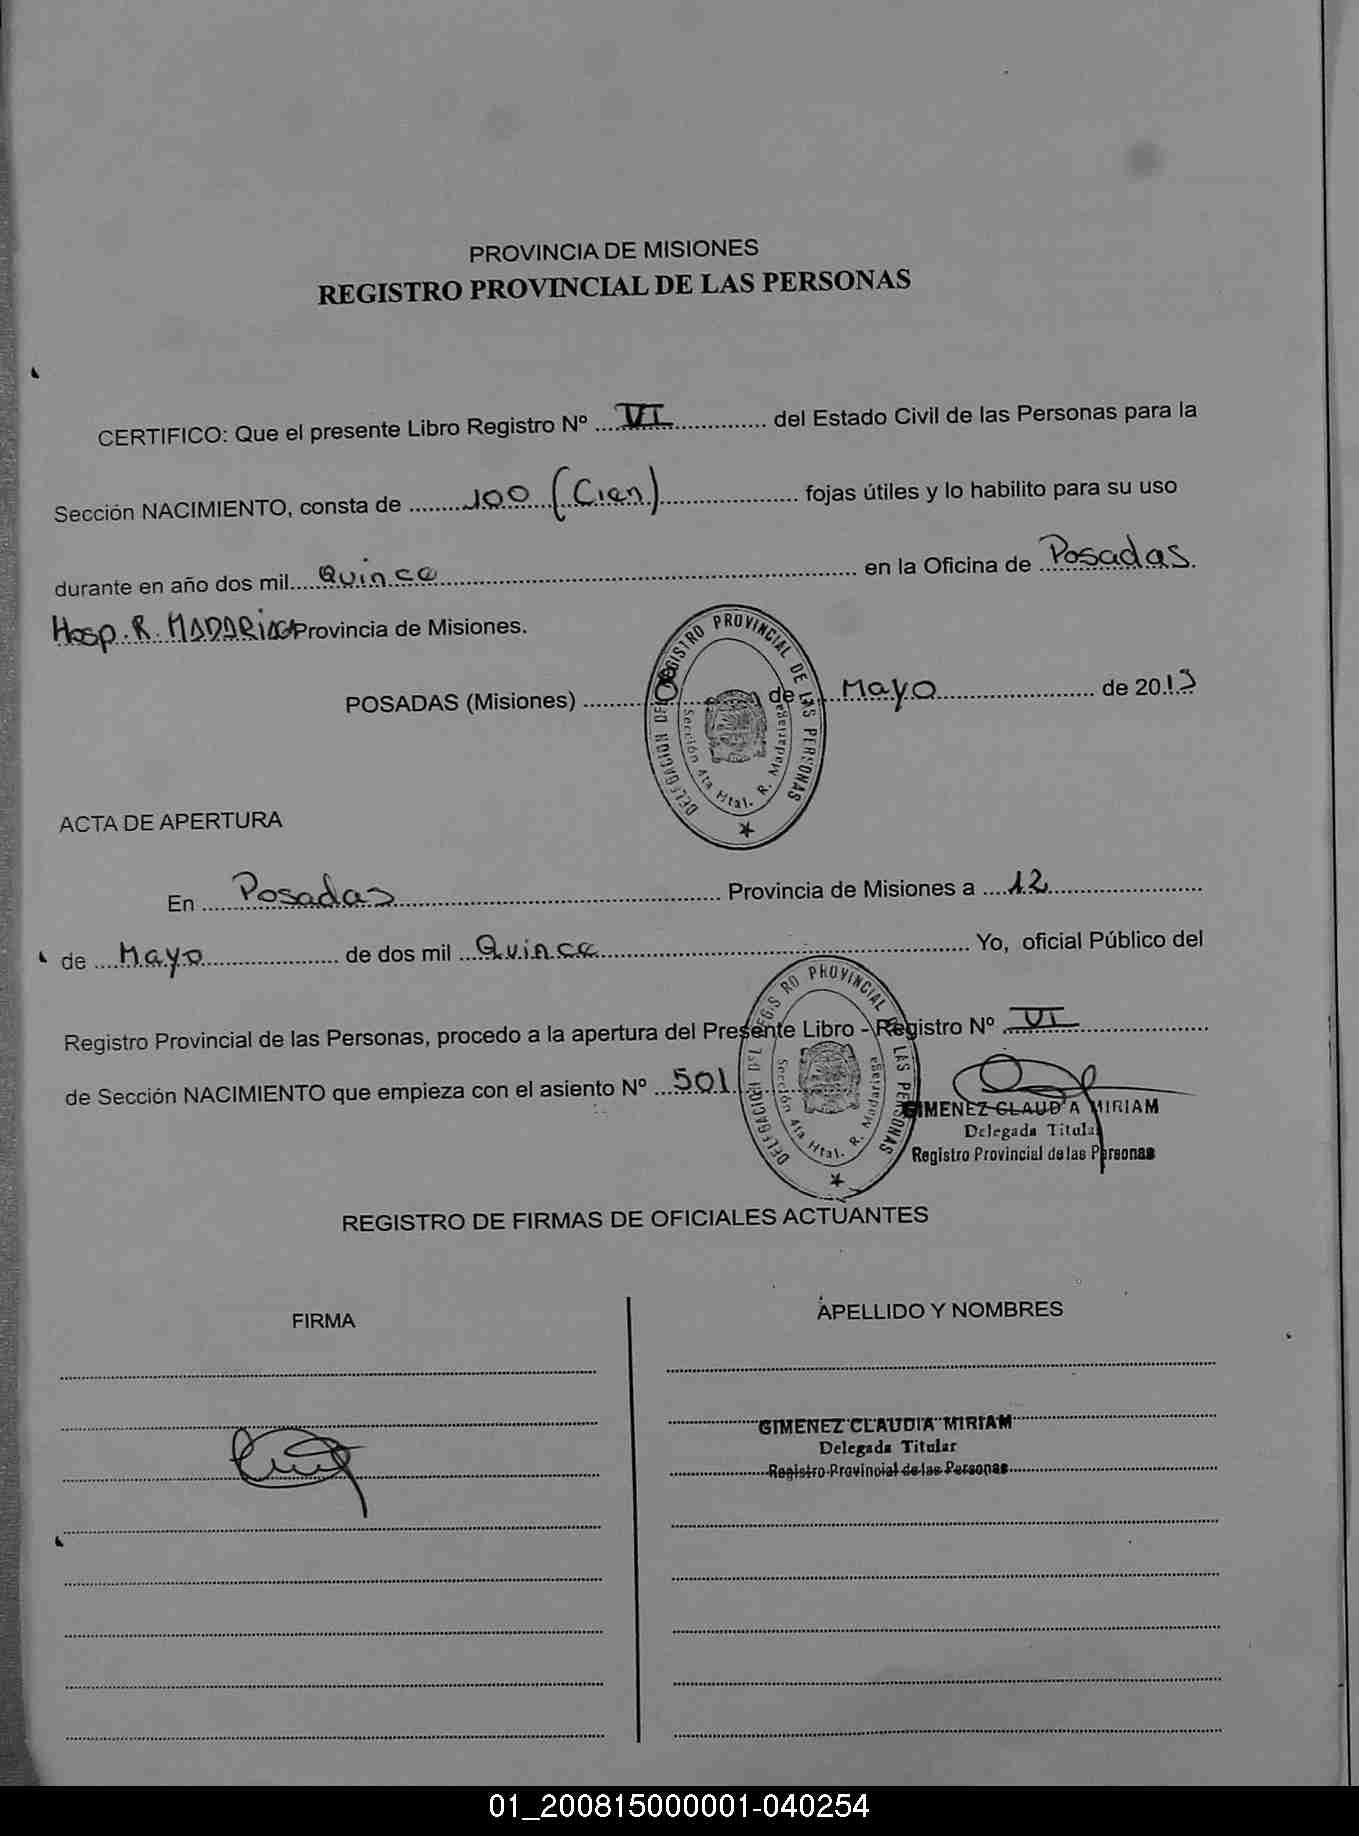 PROVINCIA DE MISIONES
REGISTRO PROVINCIAL DE LAS PERSONAS
CERTIFICO: Que el presente Libro Registro Nº ....VI.............. del Estado Civil de las Personas para la
Sección NACIMIENTO, consta de .........100 (Cien)..................... fojas útiles y lo habilito para su uso
durante en año dos mil.....Quince................................................................ en la Oficina de Posadas.
Hosp. R. MADARIAGA Provincia de Misiones.
POSADAS (Misiones) .......... de ....Mayo........................ de 201
DELEGACION DEL REGISTRO PROVINCIAL DE LAS PERSONAS
Sección 4ta Htal. R. Madariaga
ACTA DE APERTURA
En .....Posadas.................................................. Provincia de Misiones a ....12........................
de ....Mayo..................... de dos mil ...Quince.......................................................... Yo, oficial Público del
Registro Provincial de las Personas, procedo a la apertura del Presente Libro - Registro Nº ...VI....................
de Sección NACIMIENTO que empieza con el asiento Nº ...501...............
DELEGACION DEL REGISTRO PROVINCIAL DE LAS PERSONAS
Sección 4ta Htal. R. Madariaga
GIMENEZ CLAUDIA MIRIAM
Delegada Titular
Registro Provincial de las Personas
REGISTRO DE FIRMAS DE OFICIALES ACTUANTES
FIRMA
APELLIDO Y NOMBRES
GIMENEZ CLAUDIA MIRIAM
Delegada Titular
Registro Provincial de las Personas
01_200815000001-040254